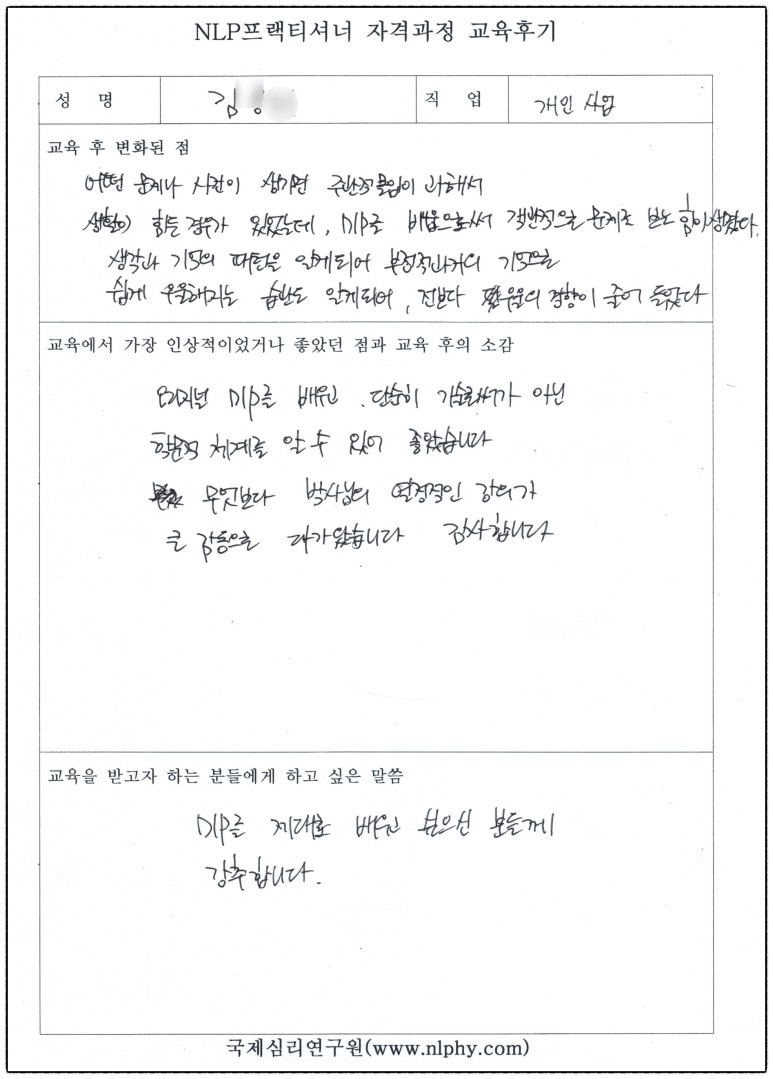 NLP프랙티셔너 자격과정 교육후기
성 명 김 직 업 개인 사업
교육 후 변화된 점
어떤 문제나 사건이 생기면 주관적 몰입이 과해서
생활이 힘든 경우가 있었는데, NLP를 배움으로써 객관적으로 문제를 보는 힘이 생겼다.
생각과 기억의 패턴을 알게되어 부정적과거의 기억으로
쉽게 우울해지는 습관도 알게되어, 전보다 우울의 경향이 줄어 들었다
교육에서 가장 인상적이었거나 좋았던 점과 교육 후의 소감
오리지널 NLP를 배우고, 단순히 기술로서가 아닌
학문적 체계를 알 수 있어 좋았습니다
무엇보다 박사님의 열정적인 강의가
큰 감동으로 다가왔습니다 감사합니다
교육을 받고자 하는 분들에게 하고 싶은 말씀
NLP를 제대로 배우고 싶으신 분들께
강추합니다.
국제심리연구원(www.nlphy.com)